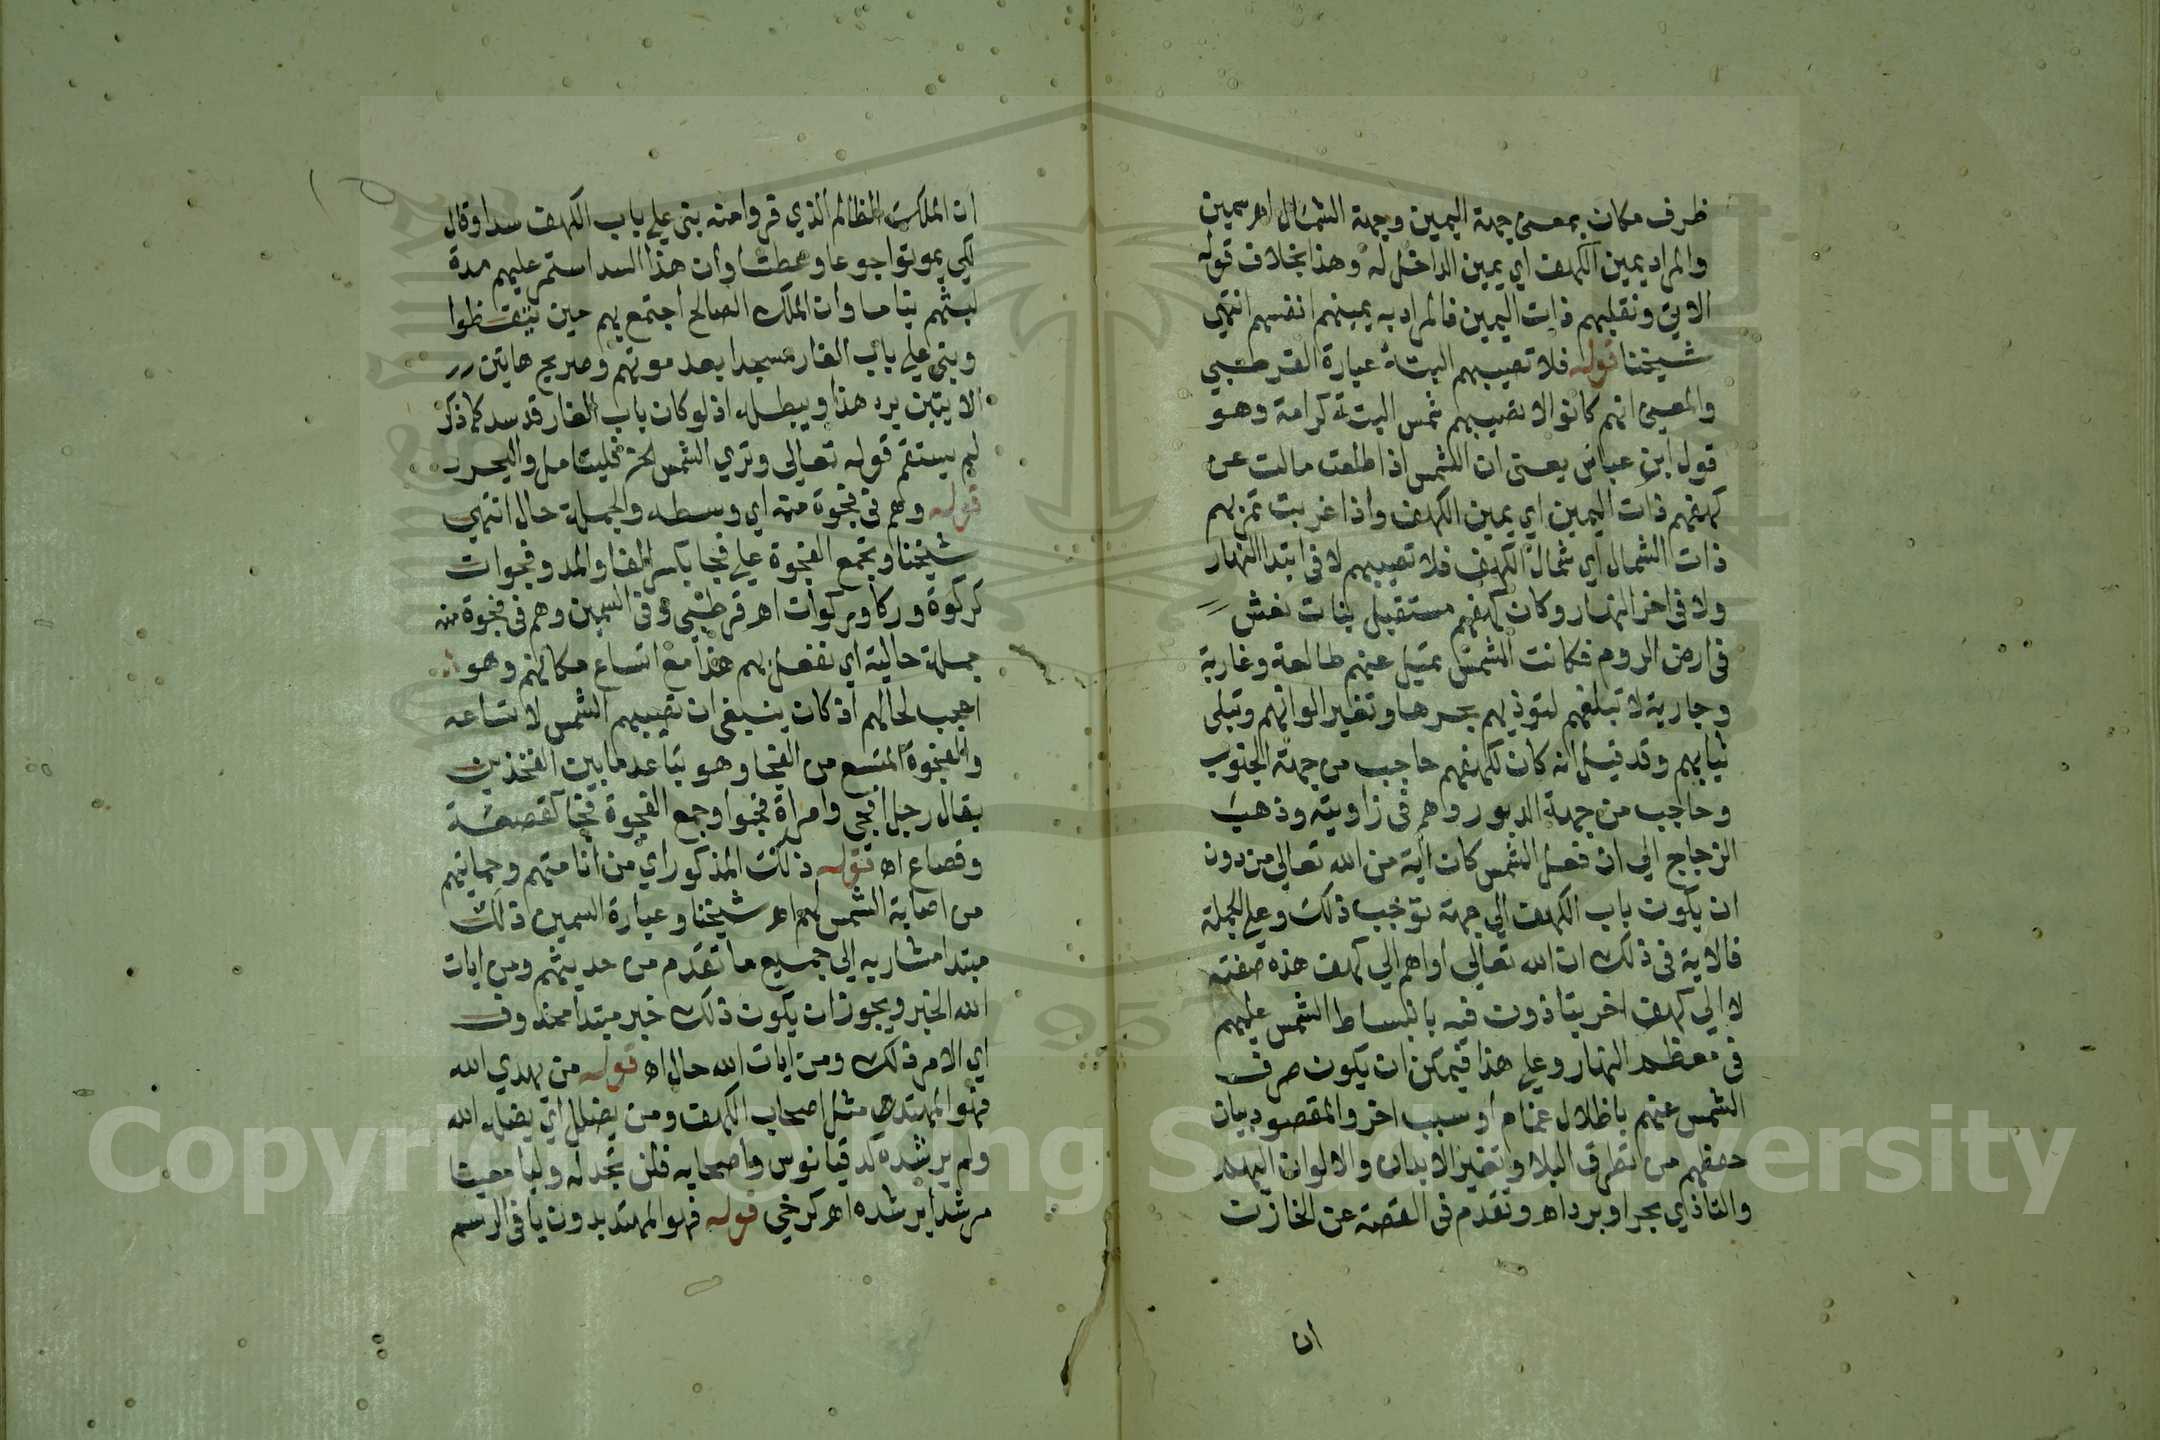 ظرف مكان بمعنى جهة اليمين وجهة الشمال اهـ سمين
والمراد يمين الكهف اي يمين الداخل له وهذا بخلاف قوله
الاتي ونقلبهم ذات اليمين فالمراد به يمينهم انفسهم انتهى
شيخنا قوله فلا تصيبهم البتة عبارة القرطبي
والمعنى انهم كانوا لا تصيبهم شمس البتة كرامة وهو
قول ابن عباس يعني ان الشمس اذا طلعت مالت عن
كهفهم ذات اليمين اي يمين الكهف واذا غربت تمر بهم
ذات الشمال اي شمال الكهف فلا تصيبهم لا في ابتدا النهار
ولا في اخر النهار وكان كهفهم مستقبل بنات نعش
في ارض الروم فكانت الشمس تميل عنهم طالعة وغاربة
وجارية لا تبلغهم لتوذيهم بحرها وتغير الوانهم وتبلي
ثيابهم وقد قيل انه كان لكهفهم حاجب من جهة الجنوب
وحاجب من جهة الدبور وهم في زاويته وذهب
الزجاج الي ان فعل الشمس كان اية من الله تعالي من دون
ان يكون باب الكهف الي جهة توجب ذلك وعلي الجملة
فالاية في ذلك ان الله تعالي اواهم الي كهف هذه صفته
لا الي كهف اخر يتاذون فيه بانبساط الشمس عليهم
في معظم النهار وعلي هذا فيمكن ان يكون صرف
الشمس عنهم باظلال غمام او سبب اخر والمقصود بيان
حفظهم من تطرق البلا وتغير الابدان والالوان اليهم
والتاذي بحر او برد اهـ وتقدم في القصة عن الخازن
ان
ان الملك الظالم الذي فروا منه بنى علي باب الكهف سدا وقال
لكي يموتوا جوعا وعطشا وان هذا السد استمر عليهم مدة
لبثهم نياما وان الملك الصالح اجتمع بهم حين تيقظوا
وبنى علي باب الغار مسجدا بعد موتهم وصريح هاتين
الايتين يرد هذا ويبطله اذ لو كان باب الغار قد سد كما ذكر
لم يستقم قوله تعالي وترى الشمس الخ فليتامل وليحرر
قوله وهم في فجوة منه اي وسطه والجملة حال انتهى
شيخنا وتجمع الفجوة علي فجا بكسر الفا والمد وفجوات
كركوة وركا وركوات اهـ قرطبي وفي السمين وهم في فجوة منه
جملة حالية اي نفعل بهم هذا مع اتساع مكانهم وهو
اعجب لحالهم اذ كان ينبغي ان تصيبهم الشمس لاتساعه
والفجوة المتسع من الفجا وهو تباعد ما بين الفخذين
يقال رجل افجى وامراة فجوا وجمع الفجوة فجا كقصعة
وقصاع اهـ قوله ذلك المذكور اي من انامتهم وحمايتهم
من اصابة الشمس لهم اهـ شيخنا وعبارة السمين ذلك
مبتدا مشار به الي جميع ما تقدم من حديثهم ومن ايات
الله الخبر ويجوز ان يكون ذلك خبر مبتدا محذوف
اي الامر ذلك ومن ايات الله حال اهـ قوله من يهدي الله
فهو المهتدي مثل اصحاب الكهف ومن يضلل اي يضله الله
ولم يرشده كدقيانوس واصحابه فلن تجد له وليا معينا
مرشدا يرشده اهـ كرخي قوله فهو المهتد بدون يا في الرسم
Copyright © King Saud University
1957